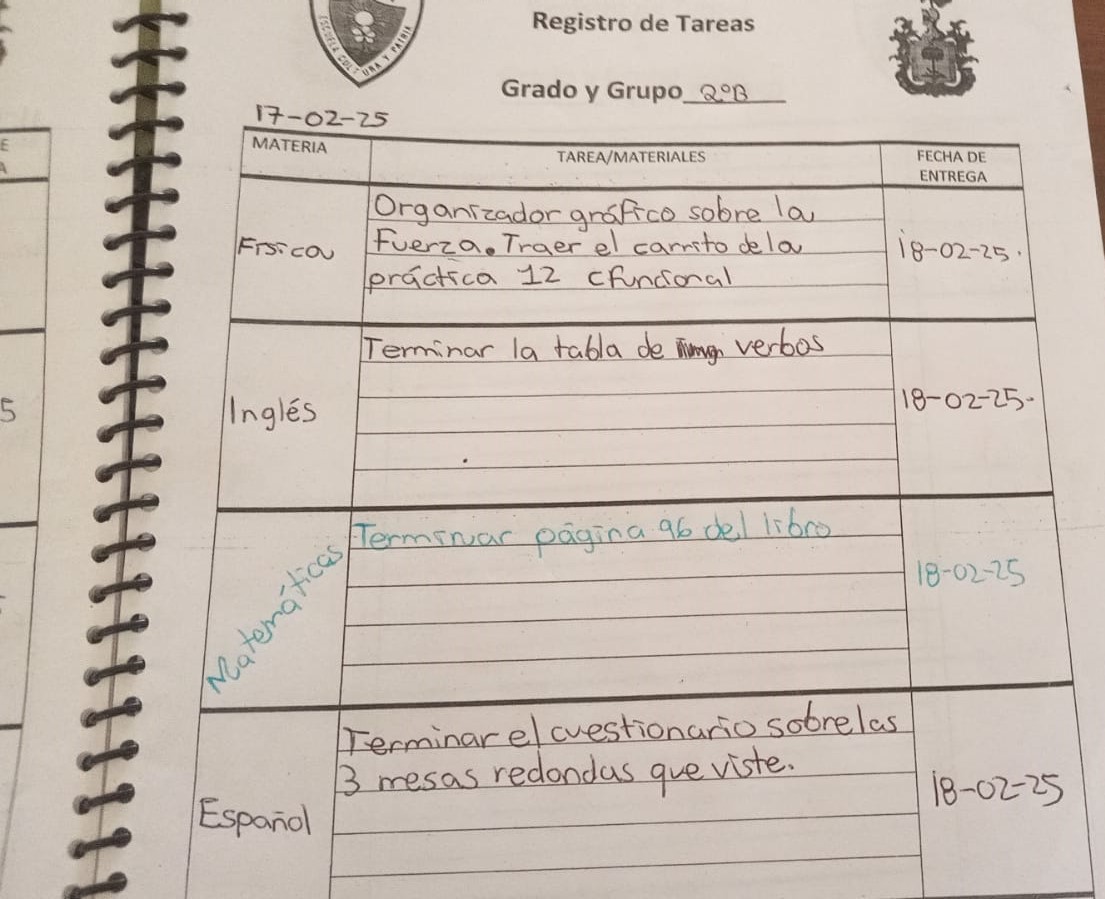 ESCUELA CULTURA Y PATRIA
Registro de Tareas
Grado y Grupo 2°B
17-02-25
MATERIA
TAREA/MATERIALES
FECHA DE
ENTREGA
Física
Organizador gráfico sobre la
Fuerza. Traer el carrito de la
práctica 12 cfuncional
18-02-25.
Inglés
Terminar la tabla de verbos
18-02-25-
Matemáticas
Terminar página 96 del libro
18-02-25
Español
Terminar el cuestionario sobre las
3 mesas redondas que viste.
18-02-25
E
A
5